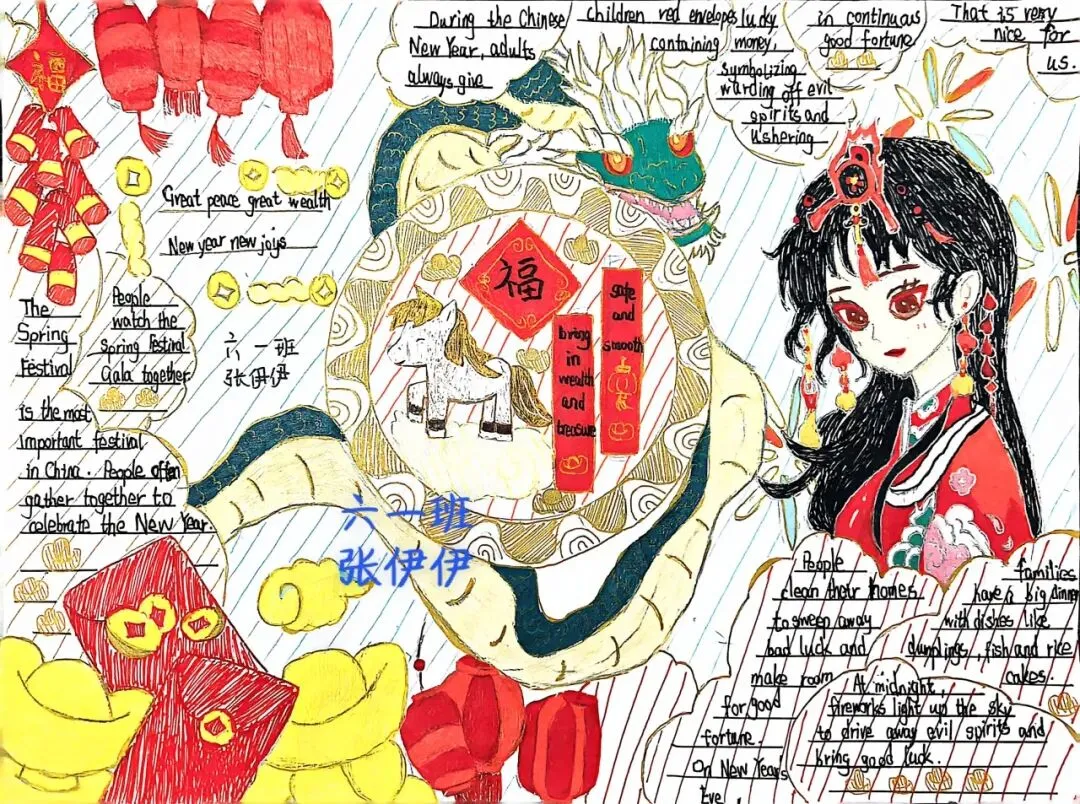 福
During the Chinese
New Year, adults
always give
Children red envelopes
containing
lucky
money,
symbolizing
warding off evil
spirits and
ushering
in continuous
good fortune
That is very
nice for
us.
Great peace great wealth
New year new joys
六一班
张伊伊
The
Spring
Festival
is the most
important festival
in China. People often
gather together to
celebrate the New Year.
People
watch the
Spring Festival
Gala together
福
bring
in
wealth
and
treasure
safe
and
smooth
六一班
张伊伊
People
clean their homes
to sweep away
bad luck and
make room
for good
fortune.
On New Year's
Eve,
families
have a big dinner
with dishes like
dumplings, fish and rice
cakes.
At midnight,
fireworks light up the sky
to drive away evil spirits and
bring good luck.